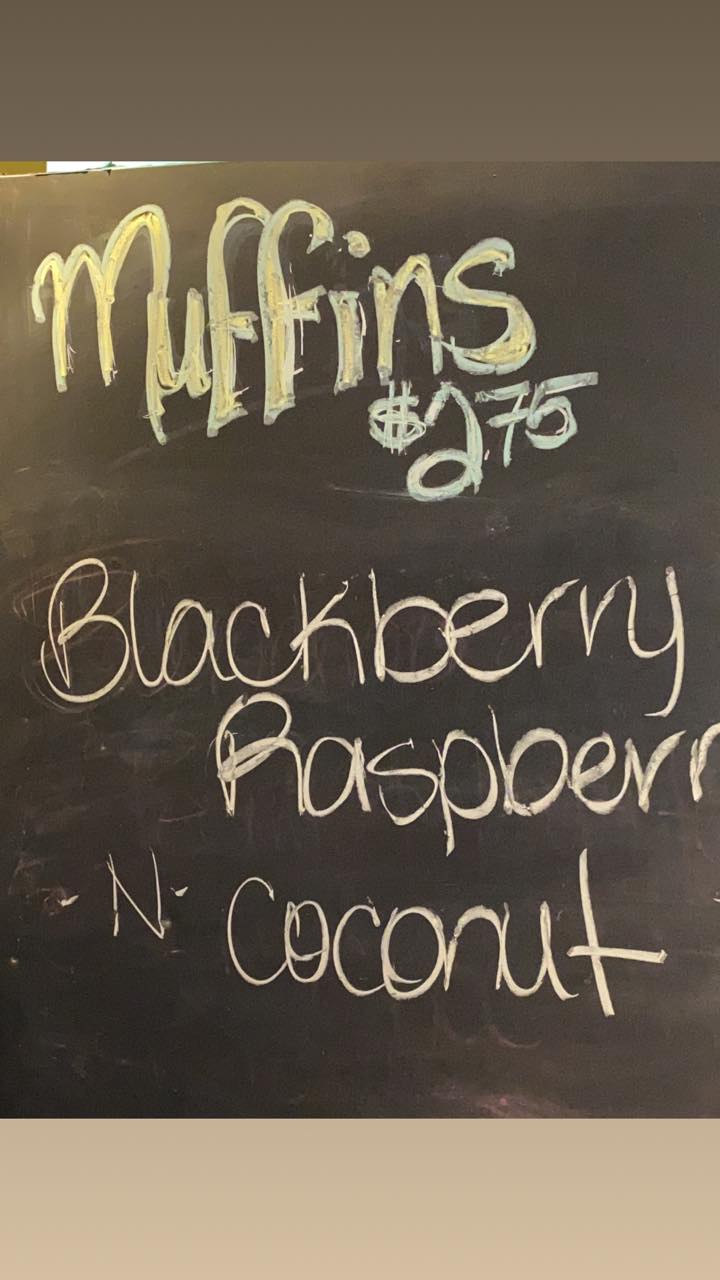 Muffins
$2.75
Blackberry
Raspberr
-N- Coconut